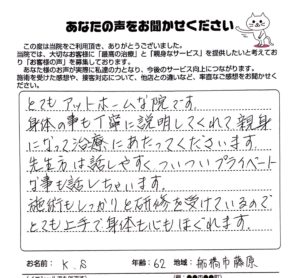 あなたの声をお聞かせください
この度は当院をご利用頂き、ありがとうございました。
当院では、大切なお客様に「最高の治療」と「親身なサービス」を提供したいと考えてお
り「お客様の声」を募集しております。
あなた様のお声が実際に私達の力となり、今後のサービス向上につながります。
施術を受けた感想や、接客対応について、他店との違いなど、率直なご感想をお聞かせく
ださい。
とてもアットホームな院です。
身体の事も丁寧に説明してくれて親身
になって治療にあたってくださいます。
先生方は話しやすくついついプライベート
な事も話しちゃいます。
施術もしっかりと研修を受けているので
とても上手で身体も心もほぐれます。
お名前: K.S 年齢: 62 地域: 船橋市藤原